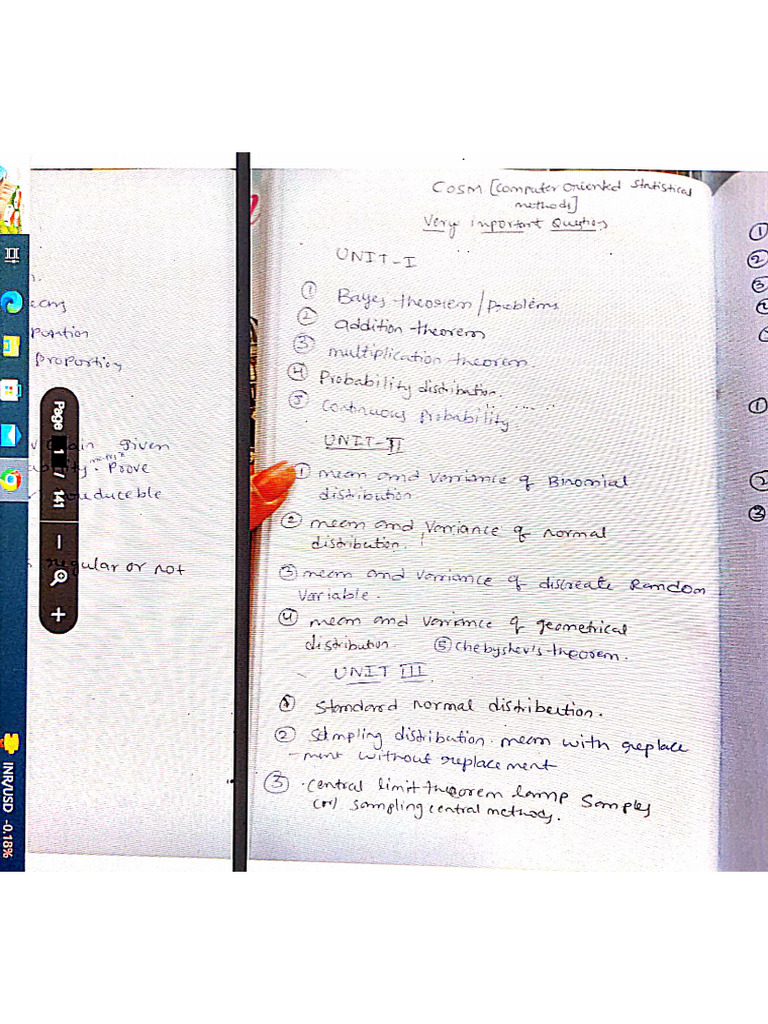 COSM [Computer Oriented Statistical
methods]
Very important Questions
UNIT-I
① Bayes theorem/problems
② addition theorem
③ multiplication theorem.
④ Probability distribution.
⑤ Continuous probability
UNIT-II
① mean and varriance of Binomial
distribution
② mean and varriance of normal
distribution.
③ mean and varriance of discreate Random
variable.
④ mean and varriance of geometrical
distribution. ⑤ chebyshev's theorem.
UNIT III
① Standard normal distribution.
② Sampling distribution mean with replace
-ment without replacement
③ central limit theorem Samples
(or) sampling central methods.
proportion
given
matrix
Prove
regular or not
Page 1 / 141
− +
INR/USD -0.18%